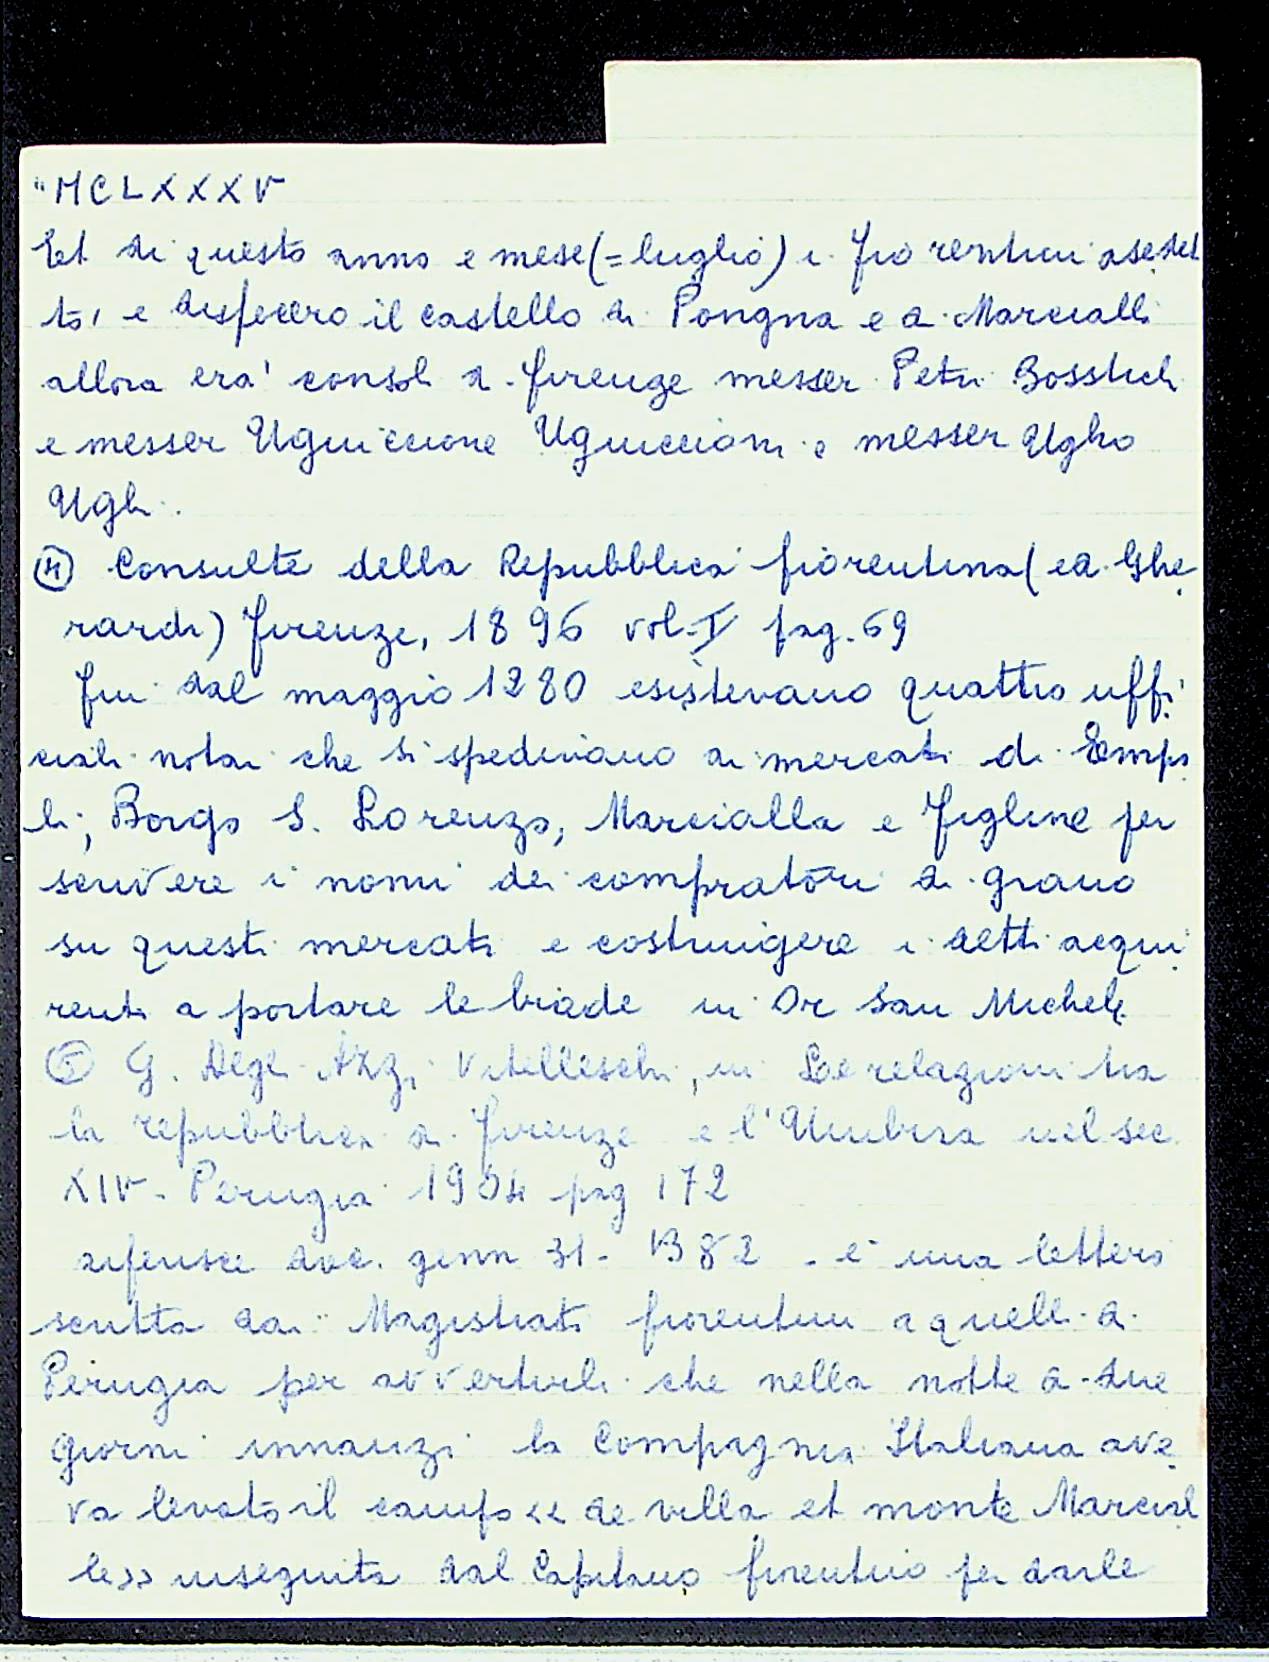 "MCLXXXV
Et di questo anno e mese (=luglio) i fiorentini asedet
tò, e disfecero il castello di Pongna e a Marcialli
allora era' consoli a firenze messer Petri Bosstichi
e messer Uguiccione Uguiccioni e messer Ugho
Ughi.
④ Consulte della Repubblica fiorentina (ed. Ghe
rardi) Firenze, 1896 vol. I pag. 69
fin dal maggio 1280 esistevano quattro uffi
ciali notai che si spedivano ai mercati di Empo
li, Borgo S. Lorenzo, Marcialla e Figline per
scrivere i nomi dei compratori di grano
su questi mercati e costringere i detti acqui
renti a portare le biade in Or San Michele
⑤ G. Degli Azzi Vitelleschi, in Le relazioni tra
la repubblica di Firenze e l'Umbria nel sec.
XIV - Perugia 1904 pag 172
riferisce doc. genn 31 - 1382 - è una lettera
scritta dai Magistrati fiorentini a quelli di
Perugia per avvertirli che nella notte di due
giorni innanzi la Compagnia Italiana ave
va levato il campo << de villa et monte Marcial
le >> inseguita dal Capitano fiorentino per darle